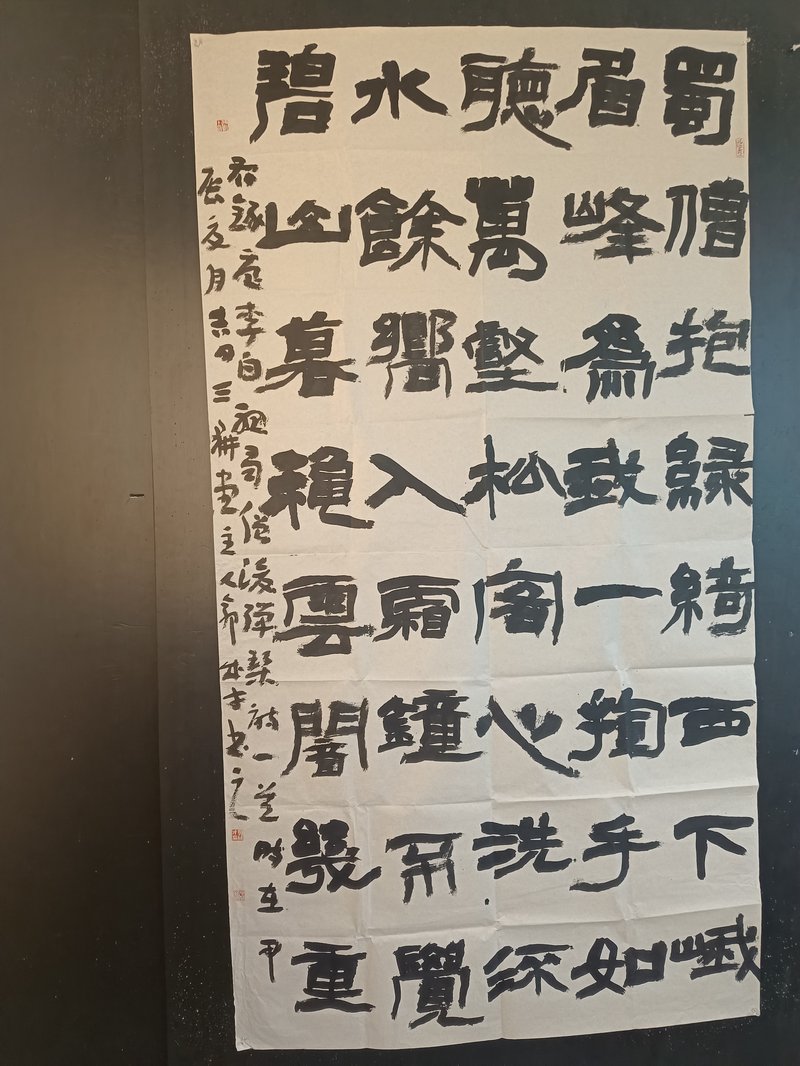 蜀僧抱綠綺西下峨
眉峰爲我一揮手如
聽萬壑松客心洗流
水餘響入霜鐘不覺
碧山暮穐雲闇幾重
右錄唐李白聽蜀僧濬彈琴詩一首時在甲
辰夏月吉日三耕堂主人